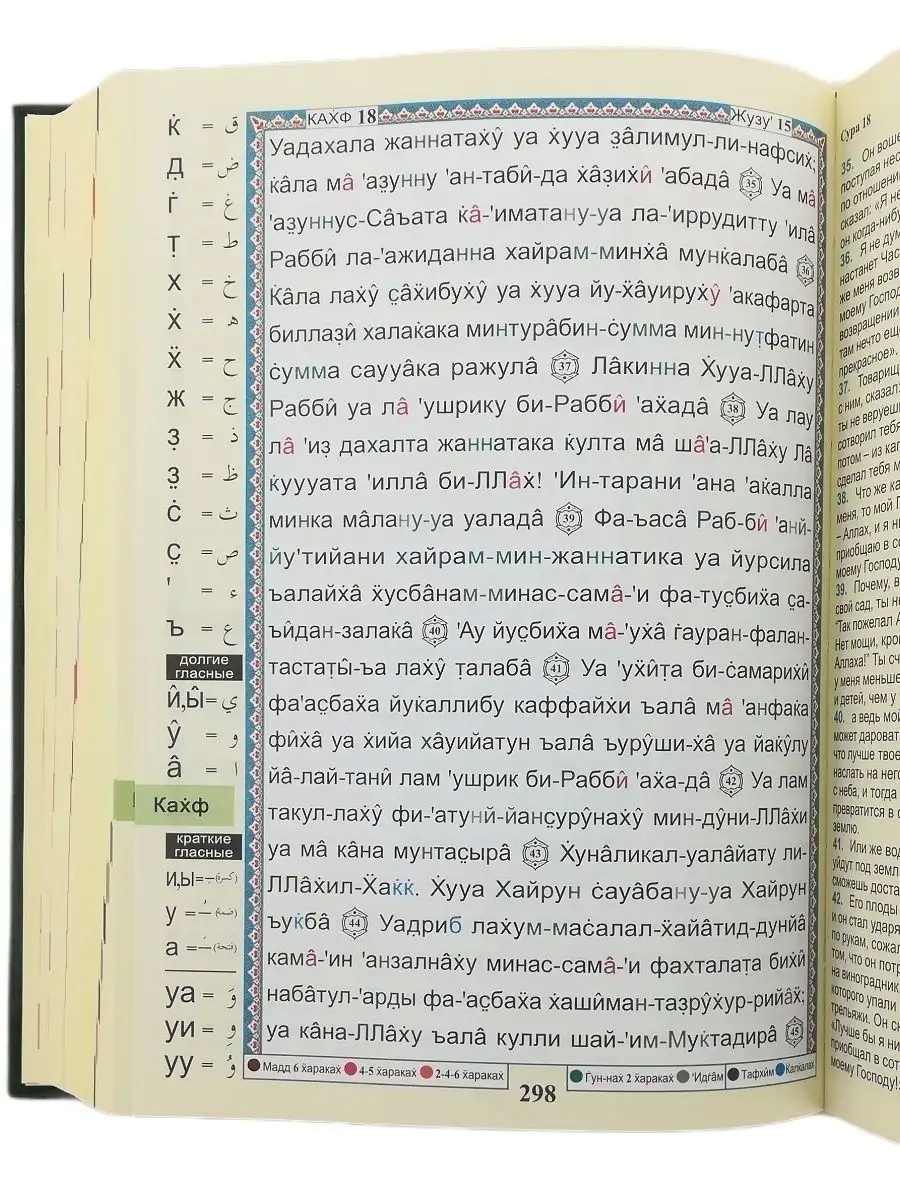 ќ = ق
д = ض
ѓ = غ
ṭ = ط
х = خ
х̇ = ه
ẍ = ح
ж = ج
з̣ = ذ
з̤ = ظ
ċ = ث
с̤ = ص
' = ء
ъ = ع
долгие
гласные
й̂,ы̂= ي
ŷ = و
â = ا
Ках̇ф
краткие
гласные
и,ы= ـِ (كسرة)
у = ـُ (ضمة)
а = ـَ (فتحة)
уа = وَ
уи = وِ
уу = وُ
КАХ̇Ф 18
Жузу' 15
Уадахала жаннатах̇ŷ уа х̇ууа з̤âлимул-ли-нафсих̇;
ќâла мâ 'аз̤унну 'ан-табӣ̂-да х̇âз̣их̇й̂ 'абадâ 35 Уа мâ
'аз̤уннус-Сâъата ќâ-'иматану-уа ла-'иррудитту 'илâ
Раббӣ̂ ла-'ажиданна хайрам-минх̇â мунќалабâ 36
Ќâла лах̇ŷ с̤âẍибух̇ŷ уа х̇ууа йу-ẍâуирух̇ŷ 'акафарта
биллаз̣й̂ халаќака минтурâбин-ċумма мин-нутфатин
ċумма сауууâка ражулâ 37 Лâкинна Х̇ууа-ЛЛâх̇у
Раббй̂ уа лâ 'ушрику би-Раббй̂ 'аẍадâ 38 Уа лау
лâ 'из̣ дахалта жаннатака ќулта мâ шâ'а-ЛЛâх̇у Лâ
ќуууата 'иллâ би-ЛЛâх̇! 'Ин-тарани 'ана 'аќалла
минка мâлану-уа уаладâ 39 Фа-ъасâ Раб-бй̂ 'анй-
йу'тийани хайрам-мин-жаннатика уа йурсила
ъалайх̇â ẍусбâнам-минас-самâ-'и фа-тус̤биẍа с̤а-
ъй̂дан-залаќâ 40 'Ау йус̤биẍа мâ-'ух̇â ѓауран-фалан-
тастаṭы̂-ъа лах̇ŷ ṭалабâ 41 Уа 'уẍй̂ṭа би-ċамарих̇й̂
фа'ас̤баẍа йуќаллибу каффайх̇и ъалâ мâ 'анфаќа
фй̂х̇â уа х̇ийа хâуийатун ъалâ ъурŷши-х̇â уа йаќŷлу
йâ-лай-танй̂ лам 'ушрик би-Раббй̂ 'аẍа-дâ 42 Уа лам
такул-лах̇ŷ фи-'атунй-йанс̤урŷнах̇у мин-дŷни-ЛЛâх̇и
уа мâ кâна мунтас̤ырâ 43 Х̇унâликал-уалâйату ли-
ЛЛâх̇ил-Ẍаќќ. Х̇ууа Хайрун ċауâбану-уа Хайрун
ъуќбâ 44 Уадриб лах̇ум-маċалал-ẍайâтид-дунйâ
камâ-'ин 'анзалнâх̇у минас-самâ-'и фахталаṭа бих̇й̂
набâтул-'арды фа-'ас̤баẍа х̇ашй̂ман-таз̣рŷх̇ур-рийâẍ;
уа кâна-ЛЛâх̇у ъалâ кулли шай-'им-Муќтадирâ 45
Мадд 6 ẍараках̇ 4-5 ẍараках̇ 2-4-6 ẍараках̇
Ѓун-нах̇ 2 ẍараках̇ 'Идѓâм Тафхй̂м Калкалах̇
298
Сура 18
35. Он
поступая
по отношению
сказал: «Я не
он когда-нибудь
36. Я не
настанет Час
же меня
моему Господу
возвращении
там нечто
прекрасное».
37.
с ним, сказал:
ты не
сотворил тебя
потом – из
сделал тебя
38. Что же
меня, то мой
– Аллах, и я
приобщаю в
моему Господу
39. Почему,
свой сад, ты не
"Так пожелал
Нет мощи,
Аллаха!" Ты
у меня меньше
и детей, чем у
40. а ведь мой
может
что лучше
наслать на него
с неба, и тогда
превратится в
землю.
41. Или же
уйдут под
сможешь
42. Его плоды
и он стал
по рукам,
том, что он
на виноградник
которого упали
Он
«Лучше бы я
приобщал в
моему Господу!